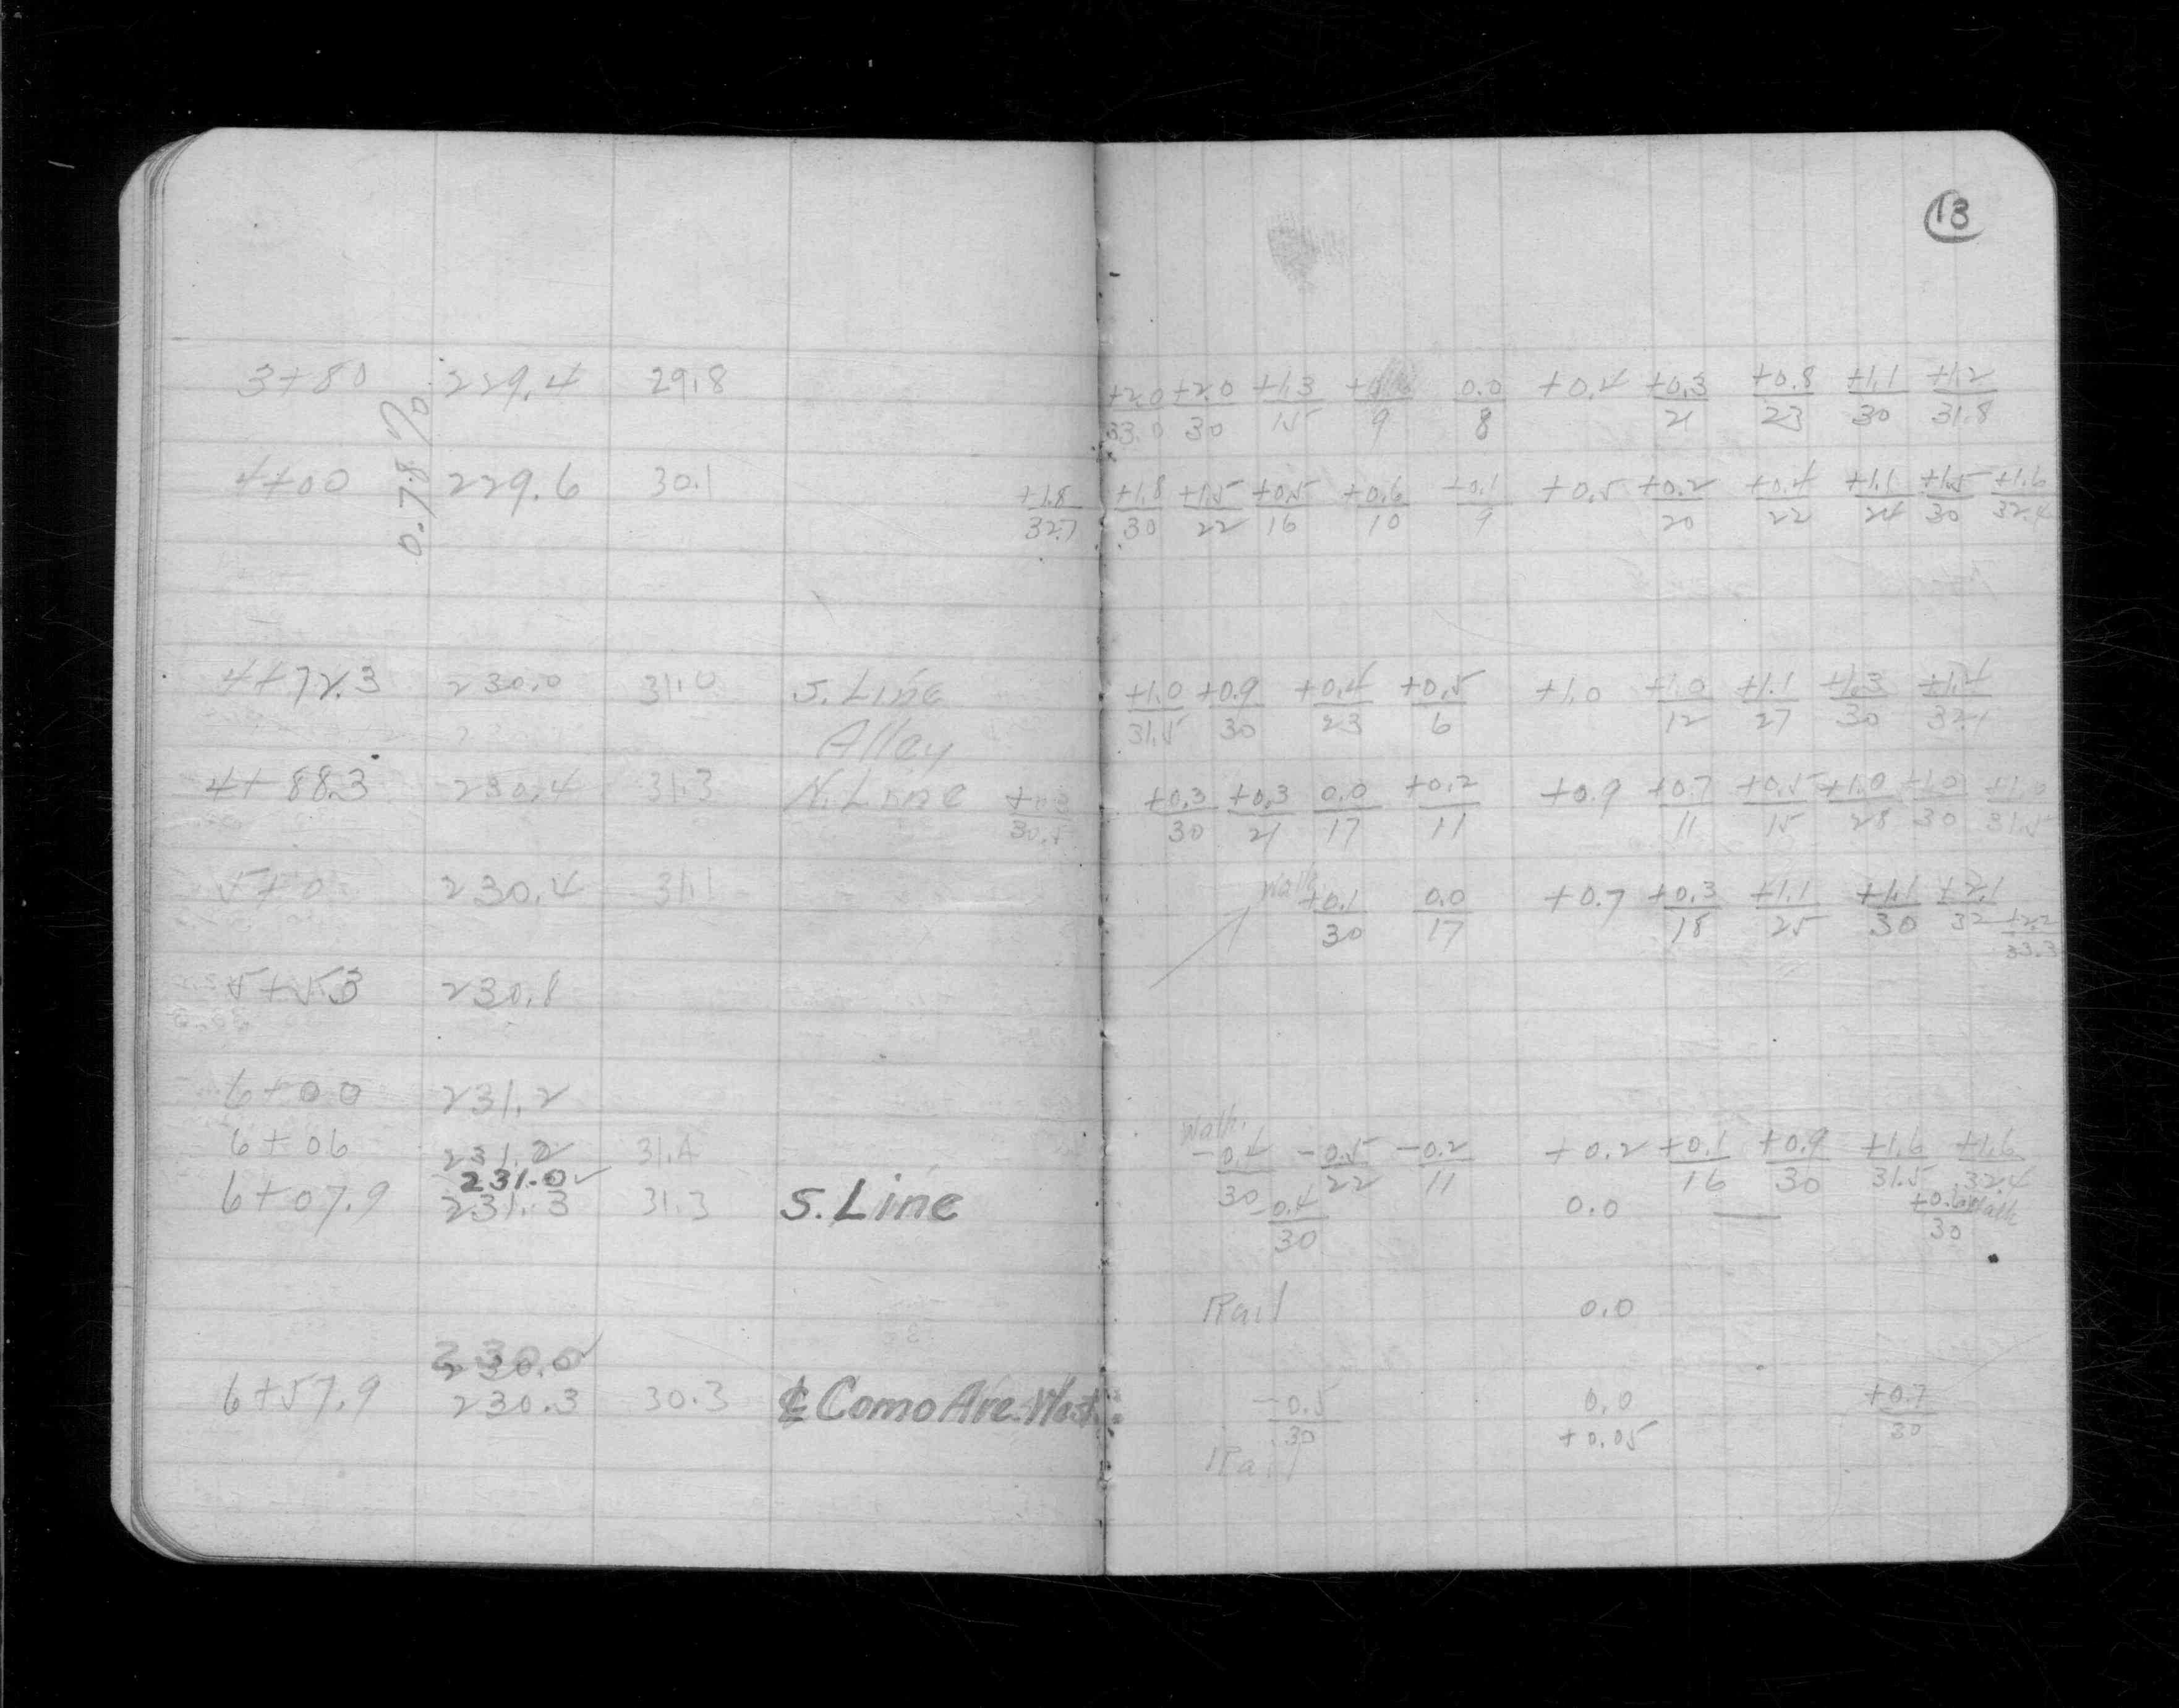 13
3+80 229.4 29.8 +2.0/33.0 +2.0/30 +1.3/15 /9 0.0/8 +0.4 +0.3/21 +0.8/23 +1.1/30 +1.2/31.8
0.78%
4+00 229.6 30.1 +1.8/32.7 +1.8/30 +1.5/22 +0.5/16 +0.6/10 +0.1/9 +0.5 +0.2/20 +0.4/22 +1.1/24 +1.5/30 +1.6/32.4
4+72.3 230.0 31.0 S. Line +1.0/31.5 +0.9/30 +0.4/23 +0.5/6 +1.0 +1.0/12 +1.1/27 +1.3/30 +1.4/32.1
Alley
4+88.3 230.4 31.3 N. Line +0.3/30 +0.3/21 0.0/17 +0.2/11 +0.9 +0.7/11 +0.5/15 +1.0/28 +1.0/30 /31.5
Walk
5+0 230.4 31.1 +0.1/30 0.0/17 +0.7 +0.3/18 +1.1/25 +1.1/30 +2.1/32 +2.2/33.3
5+53 230.8
6+00 231.2
Walk
6+06 231.2 31.4 -0.4/30 -0.5/22 -0.2/11 +0.2 +0.1/16 +0.9/30 +1.6/31.5 +1.6/32.4
231.0✓
6+07.9 231.3 31.3 S. Line -0.4/30 0.0 — +0.6/30 Walk
Rail 0.0
230.0✓
6+57.9 230.3 30.3 ℄ Como Ave. West -0.5/30 0.0 +0.7/30
+0.05
Rail